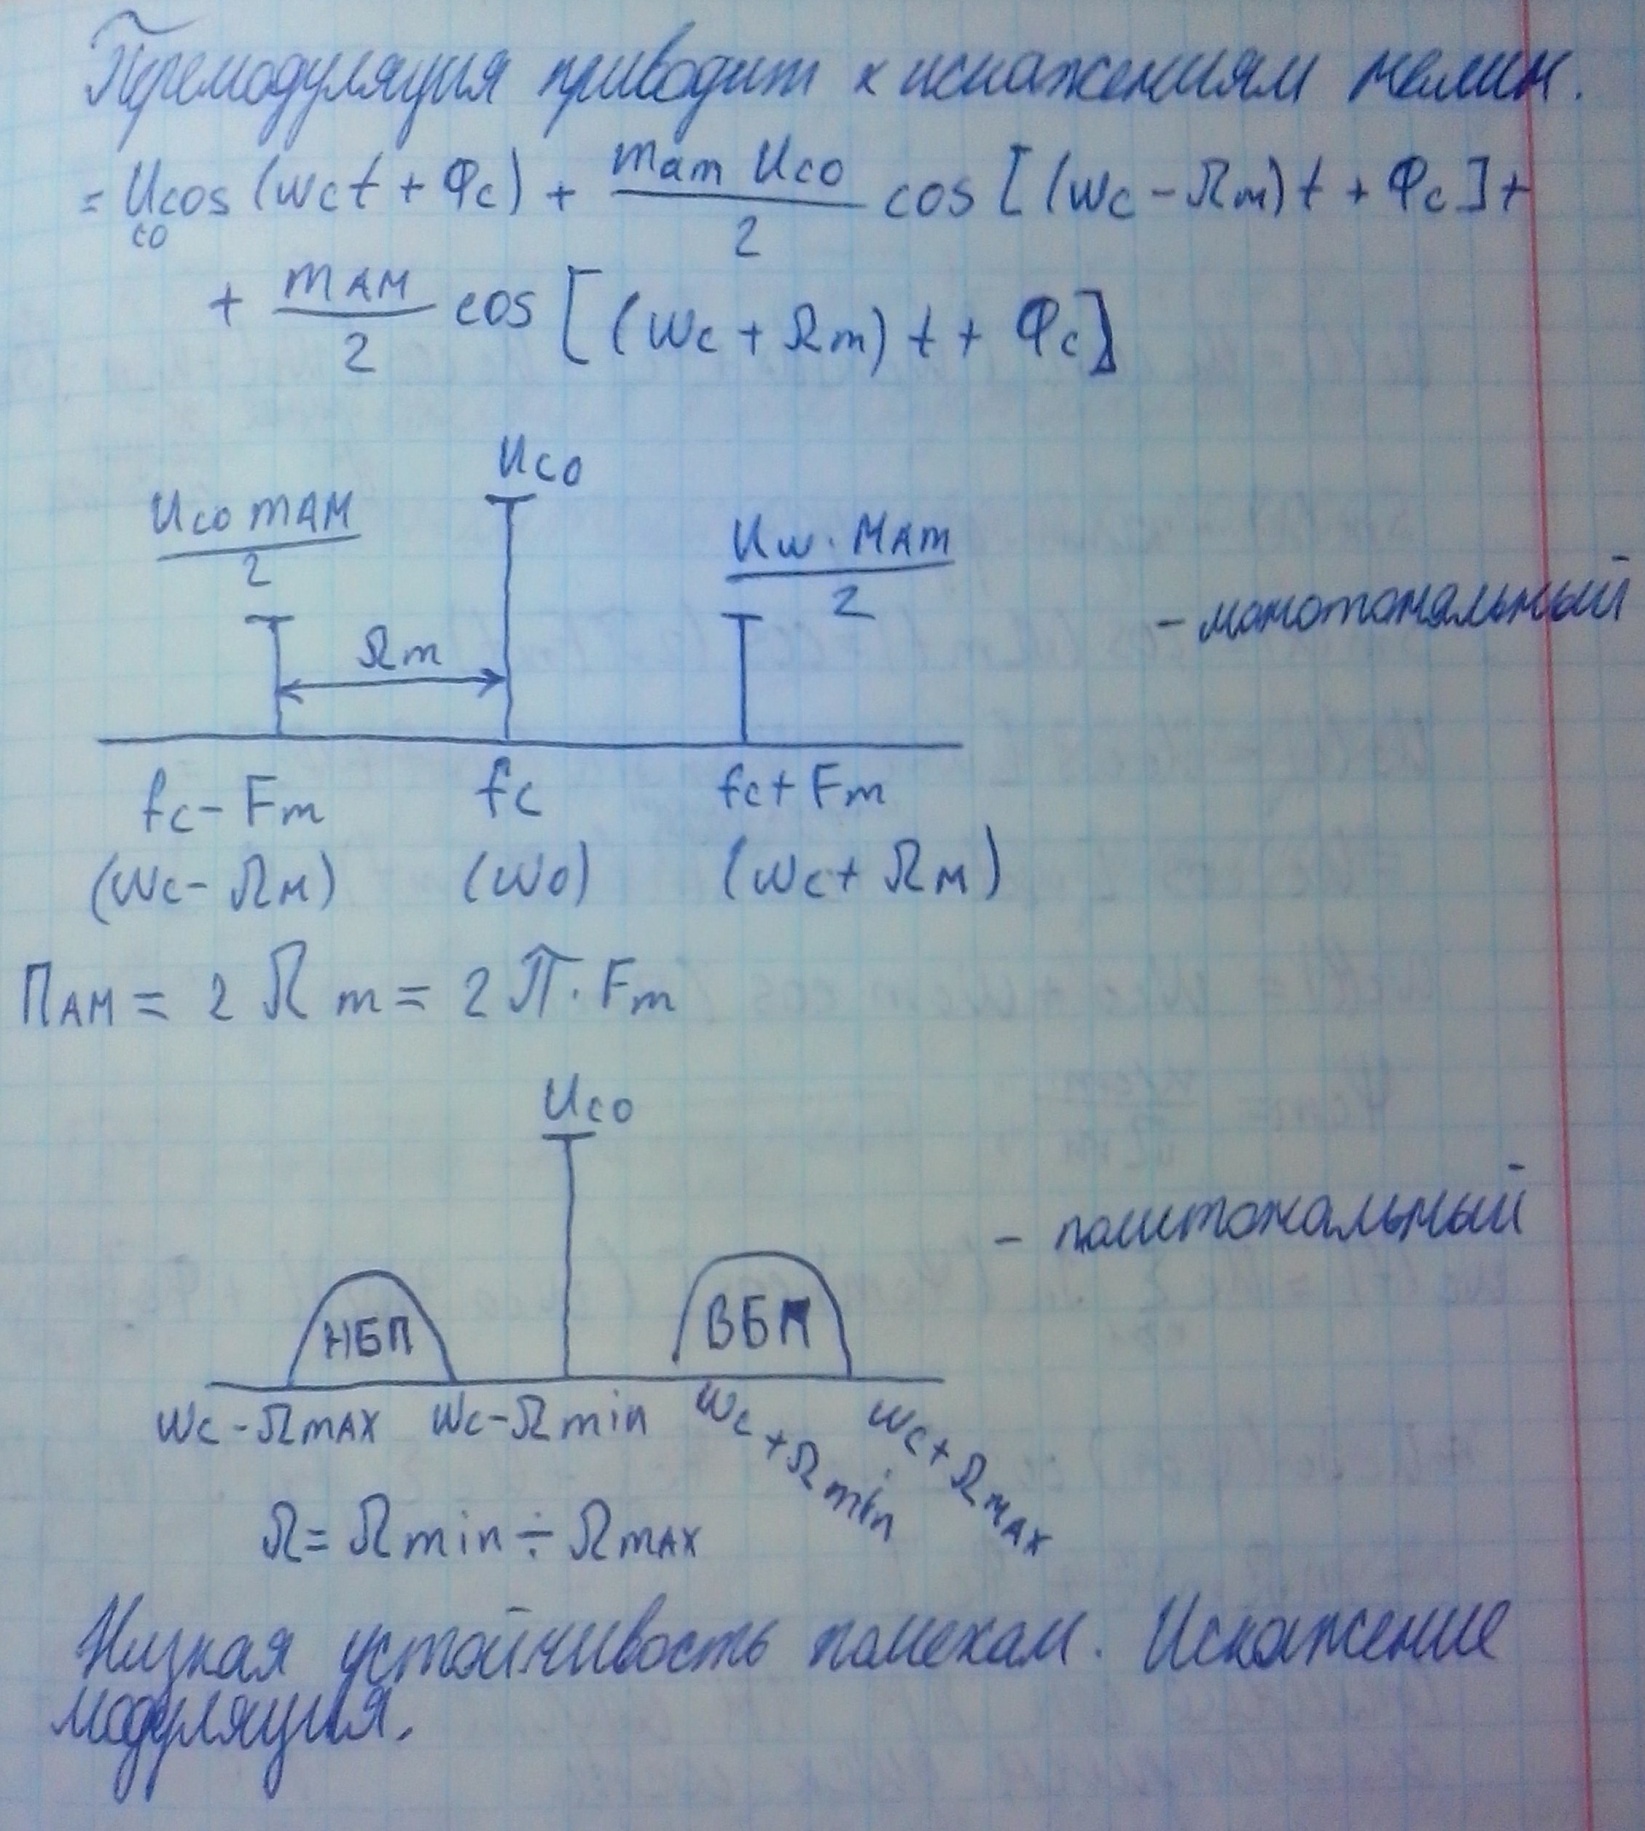 Перемодуляция приводит к искажениям нелин.
= Uco cos (ωct + φc) + mам Uco / 2 cos [(ωc - Ωm)t + φc] +
+ mАМ / 2 cos [(ωc + Ωm)t + φc]
Uco
Uco mАМ / 2
Uω · MАm / 2
Ωm
- монотональный
fc - Fm fc fc + Fm
(ωc - Ωм) (ω0) (ωc + Ωм)
ПАМ = 2 Ωm = 2π · Fm
Uco
- политональный
НБП ВБП
ωc - ΩmAX ωc - Ωmin ωc + Ωmin ωc + ΩMAX
Ω = Ωmin ÷ ΩmAX
Низкая устойчивость помехам. Искажение
модуляция.